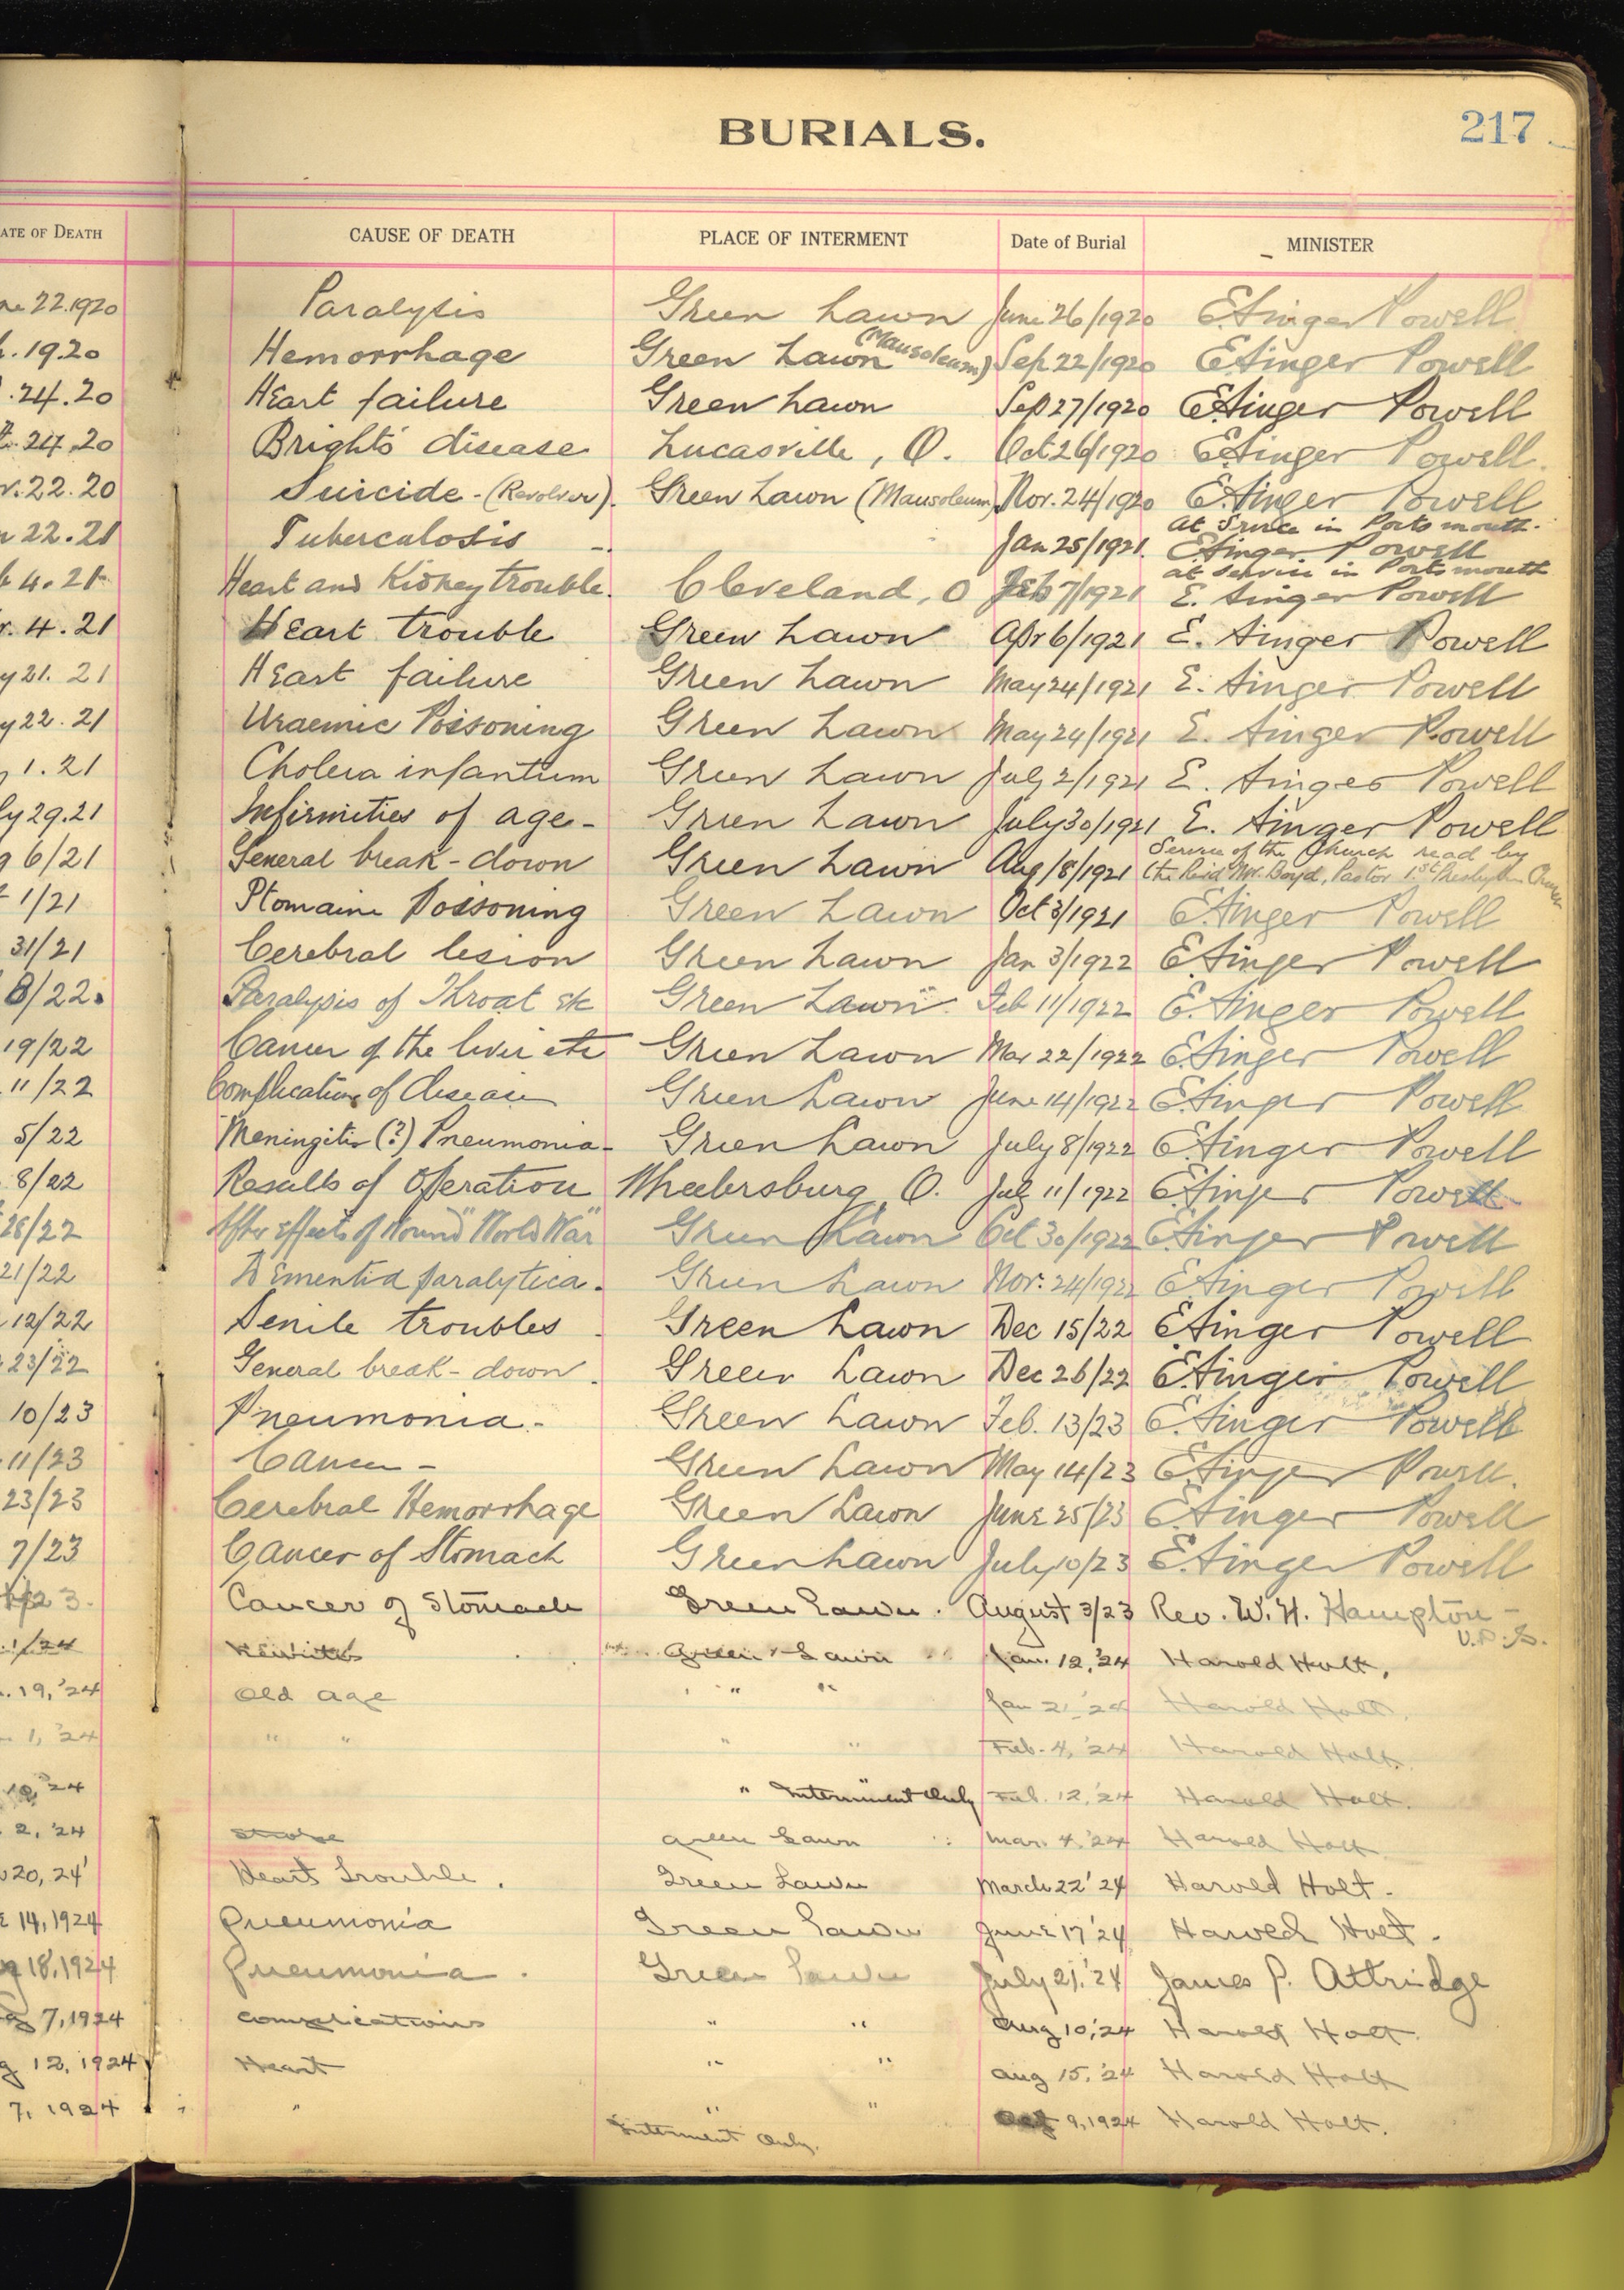 BURIALS. 217
ATE OF DEATH CAUSE OF DEATH PLACE OF INTERMENT Date of Burial MINISTER
22.1920 Paralysis Green Lawn June 26/1920 E. Ainger Powell
19.20 Hemorrhage Green Lawn (Mausoleum) Sep 22/1920 E Ainger Powell
.24.20 Heart failure Green Lawn Sep 27/1920 E. Ainger Powell
24.20 Bright's disease Lucasville, O. Oct 26/1920 E Ainger Powell.
22.20 Suicide - (Revolver). Green Lawn (Mausoleum) Nov. 24/1920 E. Ainger Powell
22.21 Tuberculosis - Jan 25/1921 at Service in Portsmouth. E Ainger Powell
4.21 Heart and Kidney trouble. Cleveland, O Feb 7/1921 at service in Portsmouth E. Ainger Powell
r. 4.21 Heart trouble Green Lawn Apr 6/1921 E. Ainger Powell
y 21. 21 Heart failure Green Lawn May 24/1921 E. Ainger Powell
y 22.21 Uraemic Poisoning Green Lawn May 24/1921 E. Ainger Powell
1.21 Cholera infantum Green Lawn July 2/1921 E. Ainger Powell
ly 29.21 Infirmities of age - Green Lawn July 30/1921 E. Ainger Powell
g 6/21 General break-down Green Lawn Aug/8/1921 Service of the Church read by (the Revd Mr. Boyd, Pastor 1st Presbytn Church
1/21 Ptomaine Poisoning Green Lawn Oct 3/1921 E. Ainger Powell
31/21 Cerebral lesion Green Lawn Jan 3/1922 E. Ainger Powell
8/22. Paralysis of Throat etc Green Lawn Feb 11/1922 E. Ainger Powell
19/22 Cancer of the liver etc Green Lawn Mar 22/1922 E. Ainger Powell
11/22 Complication of disease Green Lawn June 14/1922 E. Ainger Powell
5/22 Meningitis (?) Pneumonia - Green Lawn July 8/1922 E Ainger Powell
8/22 Results of Operation Wheelersburg, O. July 11/1922 E. Ainger Powell
28/22 After effects of Wound "World War" Green Lawn Oct 30/1922 E. Ainger Powell
21/22 Dementia paralytica. Green Lawn Nov. 24/1922 E. Ainger Powell
12/22 Senile troubles. Green Lawn Dec 15/22 E. Ainger Powell
23/22 General break-down. Green Lawn Dec 26/22 E. Ainger Powell
10/23 Pneumonia. - Green Lawn Feb. 13/23 E. Ainger Powell
11/23 Cancer - Green Lawn May 14/23 E Ainger Powell.
23/23 Cerebral Hemorrhage Green Lawn June 25/23 E Ainger Powell
7/23 Cancer of Stomach Green Lawn July 10/23 E. Ainger Powell
23. Cancer of Stomach Green Lawn. August 3/23 Rev. W. H. Hampton -
1/24 Green Lawn Jan. 12, '24 Harold Holt.
19, '24 Old age " " Jan 21, '24 Harold Holt.
1, '24 " " " " Feb. 4, '24 Harold Holt.
'24 " Interment Only Feb. 12, '24 Harold Holt.
2, '24 Stroke Green Lawn Mar. 4, '24 Harold Holt
20, 24' Heart Trouble. Green Lawn March 22 '24 Harold Holt.
14, 1924 Pneumonia Green Lawn June 17 '24 Harold Holt.
18, 1924 Pneumonia. Green Lawn July 21, '24 James P. Attridge
7, 1924 Complications " " Aug 10, '24 Harold Holt.
g 12, 1924 Heart " " Aug 15, '24 Harold Holt
7, 1924 " " " 9, 1924 Harold Holt.
Interment Only.